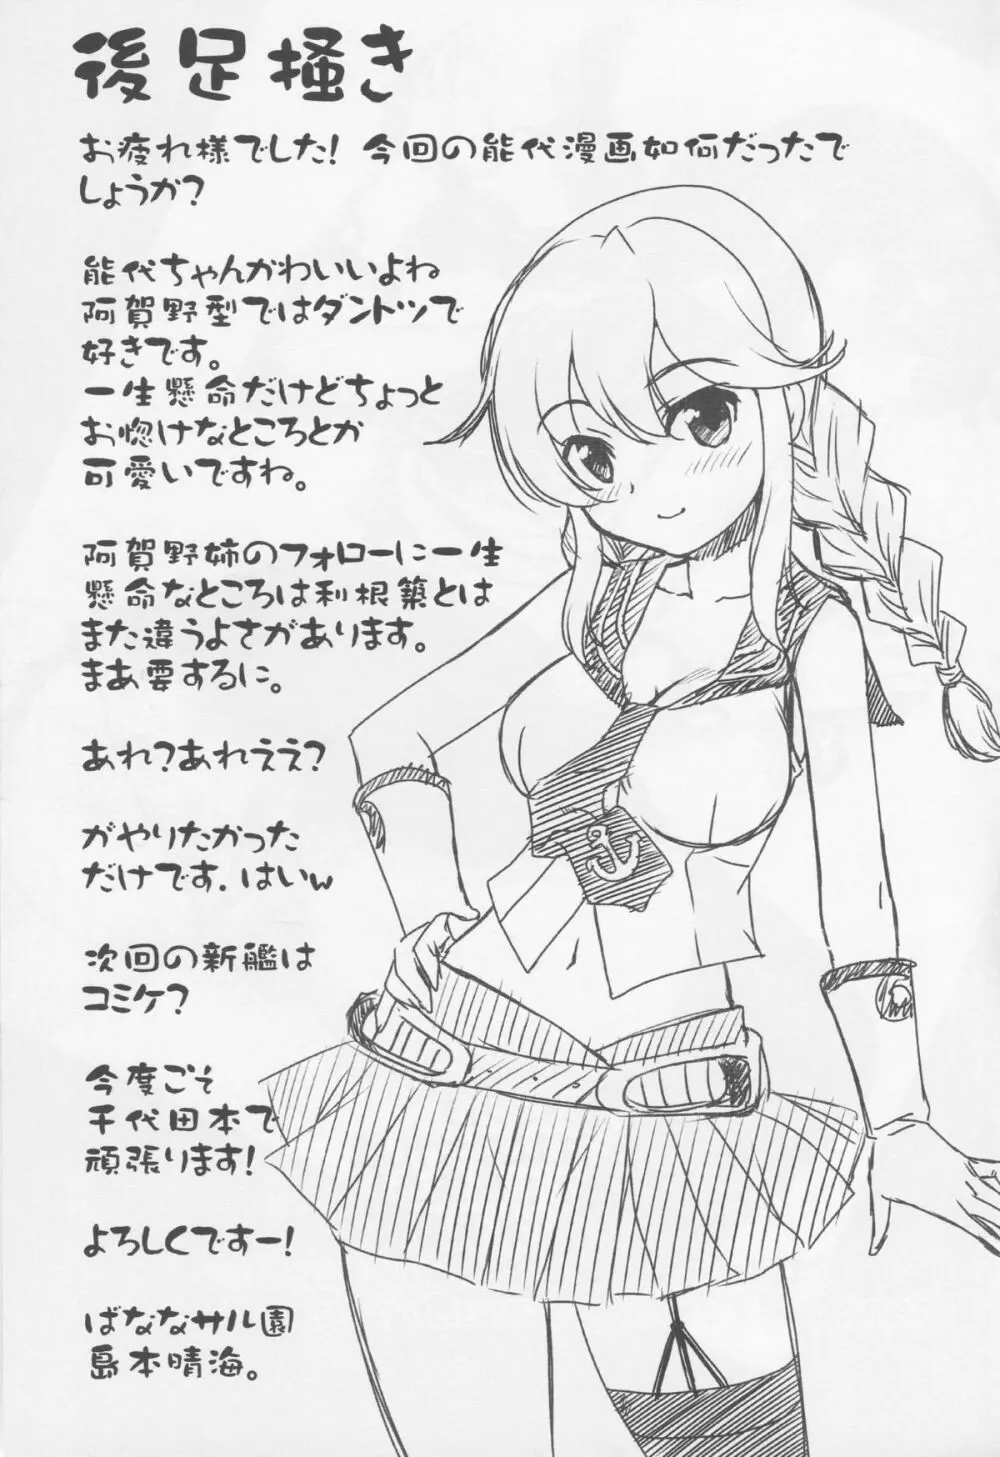 後足掻き
お疲れ様でした! 今回の能代漫画如何だったで
しょうか?
能代ちゃんかわいいよね
阿賀野型ではダントツで
好きです。
一生懸命だけどちょっと
お惚けなところとか
可愛いですね。
阿賀野姉のフォローに一生
懸命なところは利根築とは
また違うよさがあります。
まあ要するに。
あれ?あれええ?
がやりたかった
だけです.はいw
次回の新艦は
コミケ?
今度こそ
千代田本で
頑張ります!
よろしくですー!
ばななサル園
島本晴海。